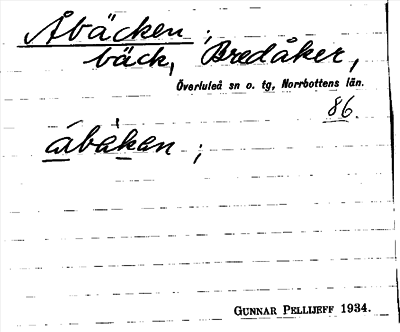 Åbäcken ;
bäck, Bredåker,
Överluleå sn o. tg, Norrbottens län.
86.
åbäkan ;
GUNNAR PELLIJEFF 1934.